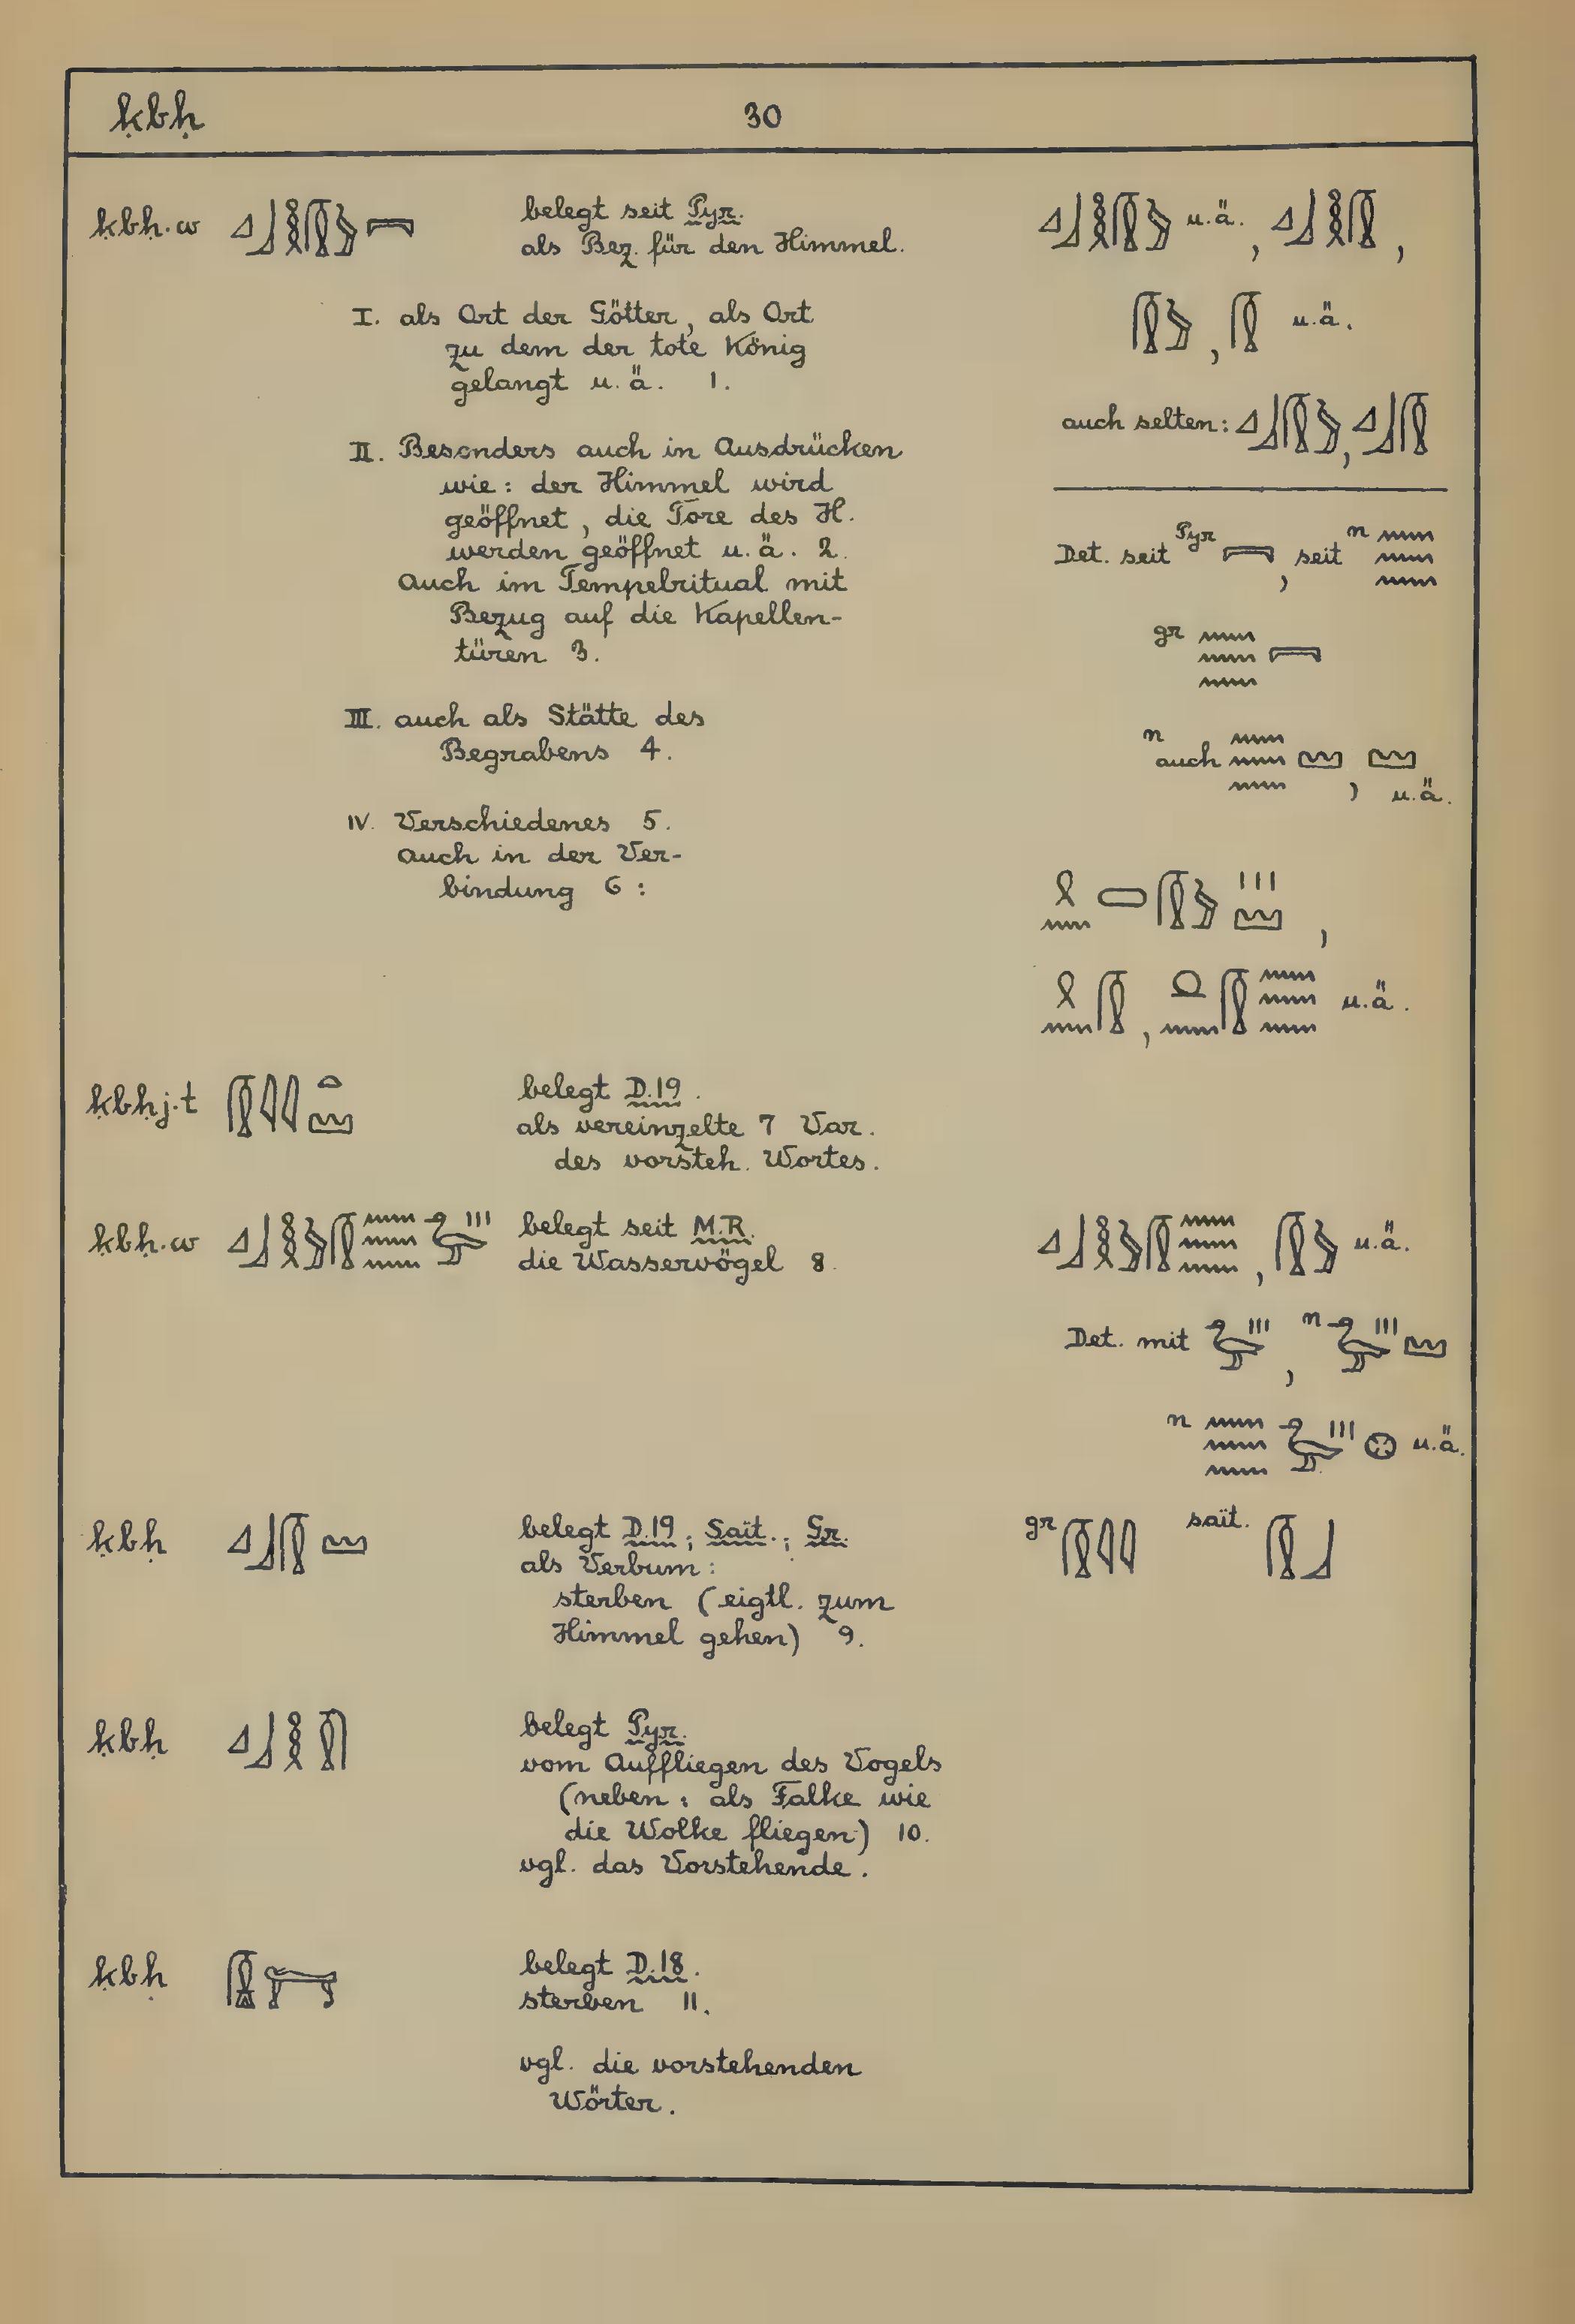 ḳbḥ 30
ḳbḥ.w belegt seit Pyr.
als Bez. für den Himmel.
u.ä. , ,
I. als Ort der Götter, als Ort
zu dem der tote König
gelangt u.ä. 1.
, u.ä.
auch selten: ,
II. Besonders auch in Ausdrücken
wie: der Himmel wird
geöffnet, die Tore des H.
werden geöffnet u.ä. 2.
Auch im Tempelritual mit
Bezug auf die Kapellen-
türen 3.
Det. seit Pyr , seit n
gr
III. auch als Stätte des
Begrabens 4.
n auch , u.ä.
IV. Verschiedenes 5.
auch in der Ver-
bindung 6:
,
, u.ä.
ḳbḥj.t belegt D.19.
als vereinzelte 7 Var.
des vorsteh. Wortes.
ḳbḥ.w belegt seit M.R.
die Wasservögel 8.
, u.ä.
Det. mit , n
n u.ä.
ḳbḥ belegt D.19; Sait.; Gr.
als Verbum:
sterben (eigtl. zum
Himmel gehen) 9.
gr sait.
ḳbḥ belegt Pyr.
vom Auffliegen des Vogels
(neben: als Falke wie
die Wolke fliegen) 10.
vgl. das Vorstehende.
ḳbḥ belegt D.18.
sterben 11.
vgl. die vorstehenden
Wörter.